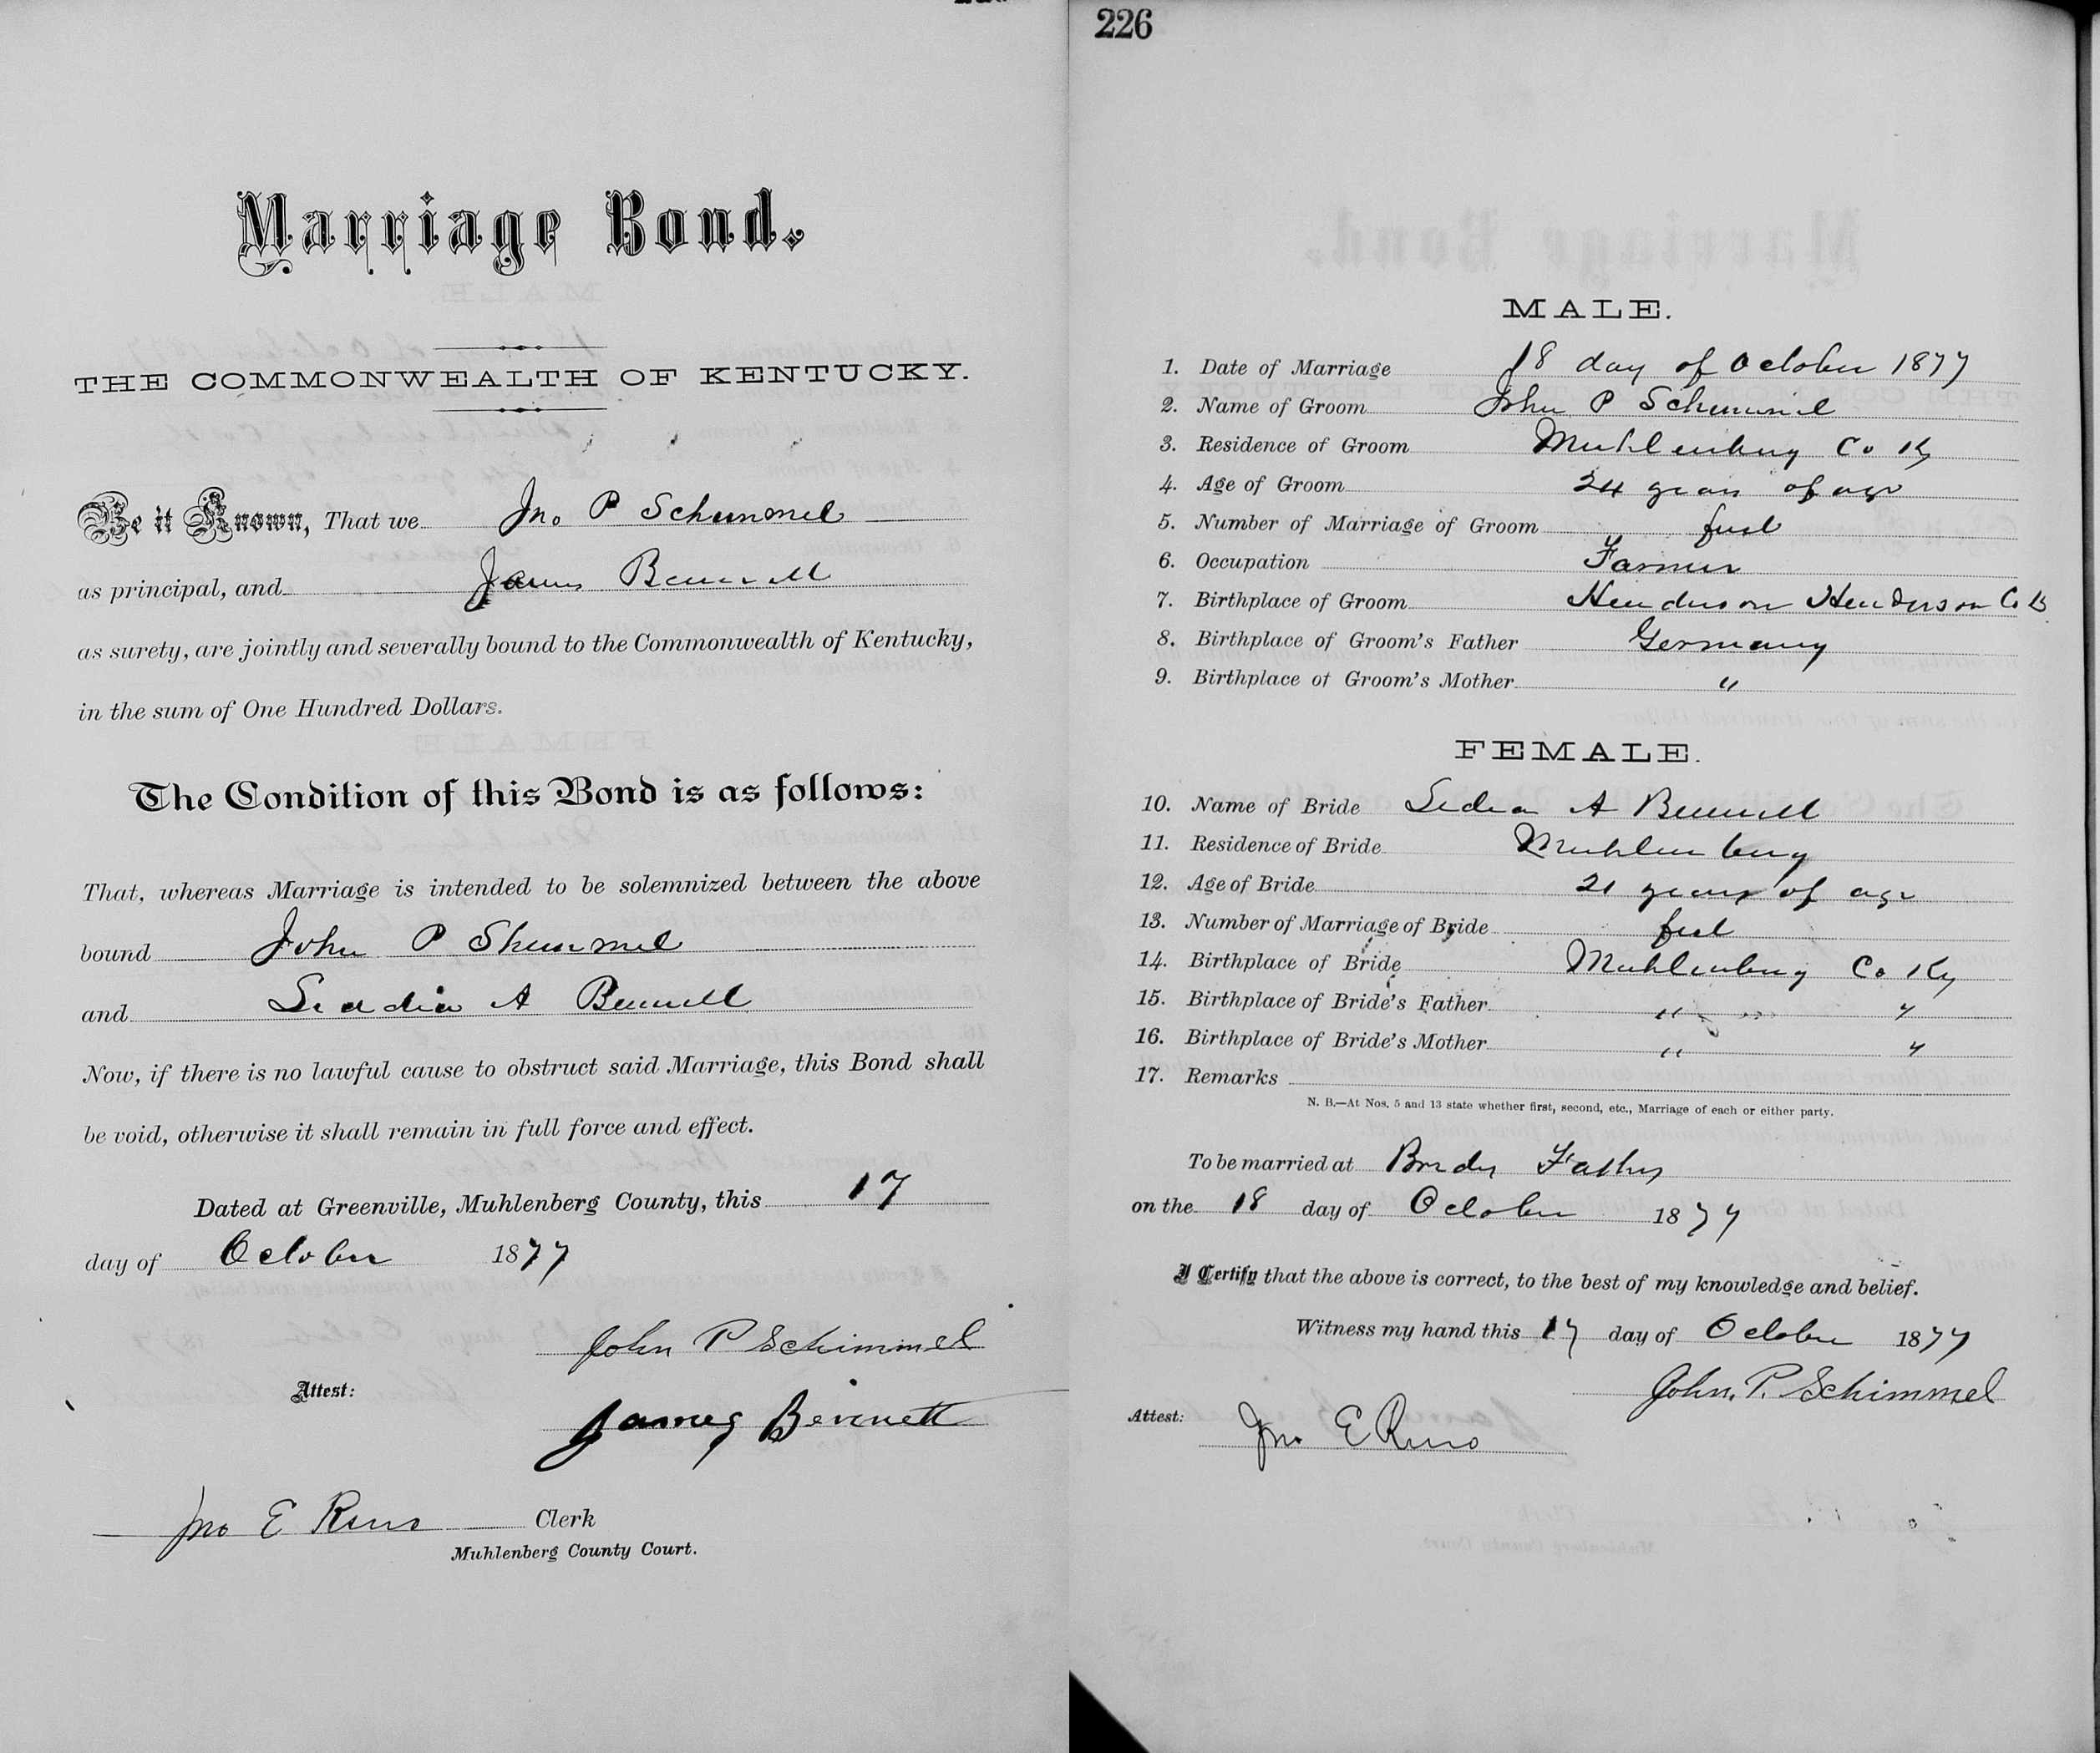 Marriage Bond.
THE COMMONWEALTH OF KENTUCKY.
Be it Known, That we Jno P Schimmel
as principal, and James Bennett
as surety, are jointly and severally bound to the Commonwealth of Kentucky,
in the sum of One Hundred Dollars.
The Condition of this Bond is as follows:
That, whereas Marriage is intended to be solemnized between the above
bound John P Shimmel
and A Bennett
Now, if there is no lawful cause to obstruct said Marriage, this Bond shall
be void, otherwise it shall remain in full force and effect.
Dated at Greenville, Muhlenberg County, this 17
day of October 1877
John P Schimmel
Attest:
James Bennett
Jno E Reno Clerk
Muhlenberg County Court.
226
MALE.
1. Date of Marriage 18 day of October 1877
2. Name of Groom John P Schimmel
3. Residence of Groom Muhlenburg Co Ky
4. Age of Groom 24 years of age
5. Number of Marriage of Groom first
6. Occupation Farmer
7. Birthplace of Groom Henderson Henderson Co Ky
8. Birthplace of Groom's Father Germany
9. Birthplace of Groom's Mother "
FEMALE.
10. Name of Bride Ledia A Bennett
11. Residence of Bride Muhlenburg
12. Age of Bride 21 years of age
13. Number of Marriage of Bride first
14. Birthplace of Bride Muhlenburg Co Ky
15. Birthplace of Bride's Father " "
16. Birthplace of Bride's Mother " "
17. Remarks
N. B.—At Nos. 5 and 13 state whether first, second, etc., Marriage of each or either party.
To be married at Brides Fathers
on the 18 day of October 1877
I Certify that the above is correct, to the best of my knowledge and belief.
Witness my hand this 17 day of October 1877
John. P. Schimmel
Attest: Jno E Reno